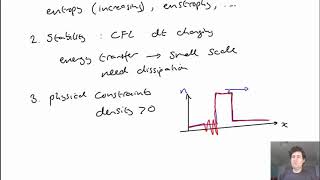 entropy (increasing), enstrophy, ...
2. Stability : CFL dt changing
energy transfer → small scale
need dissipation
3. physical constraints
density > 0
n
x